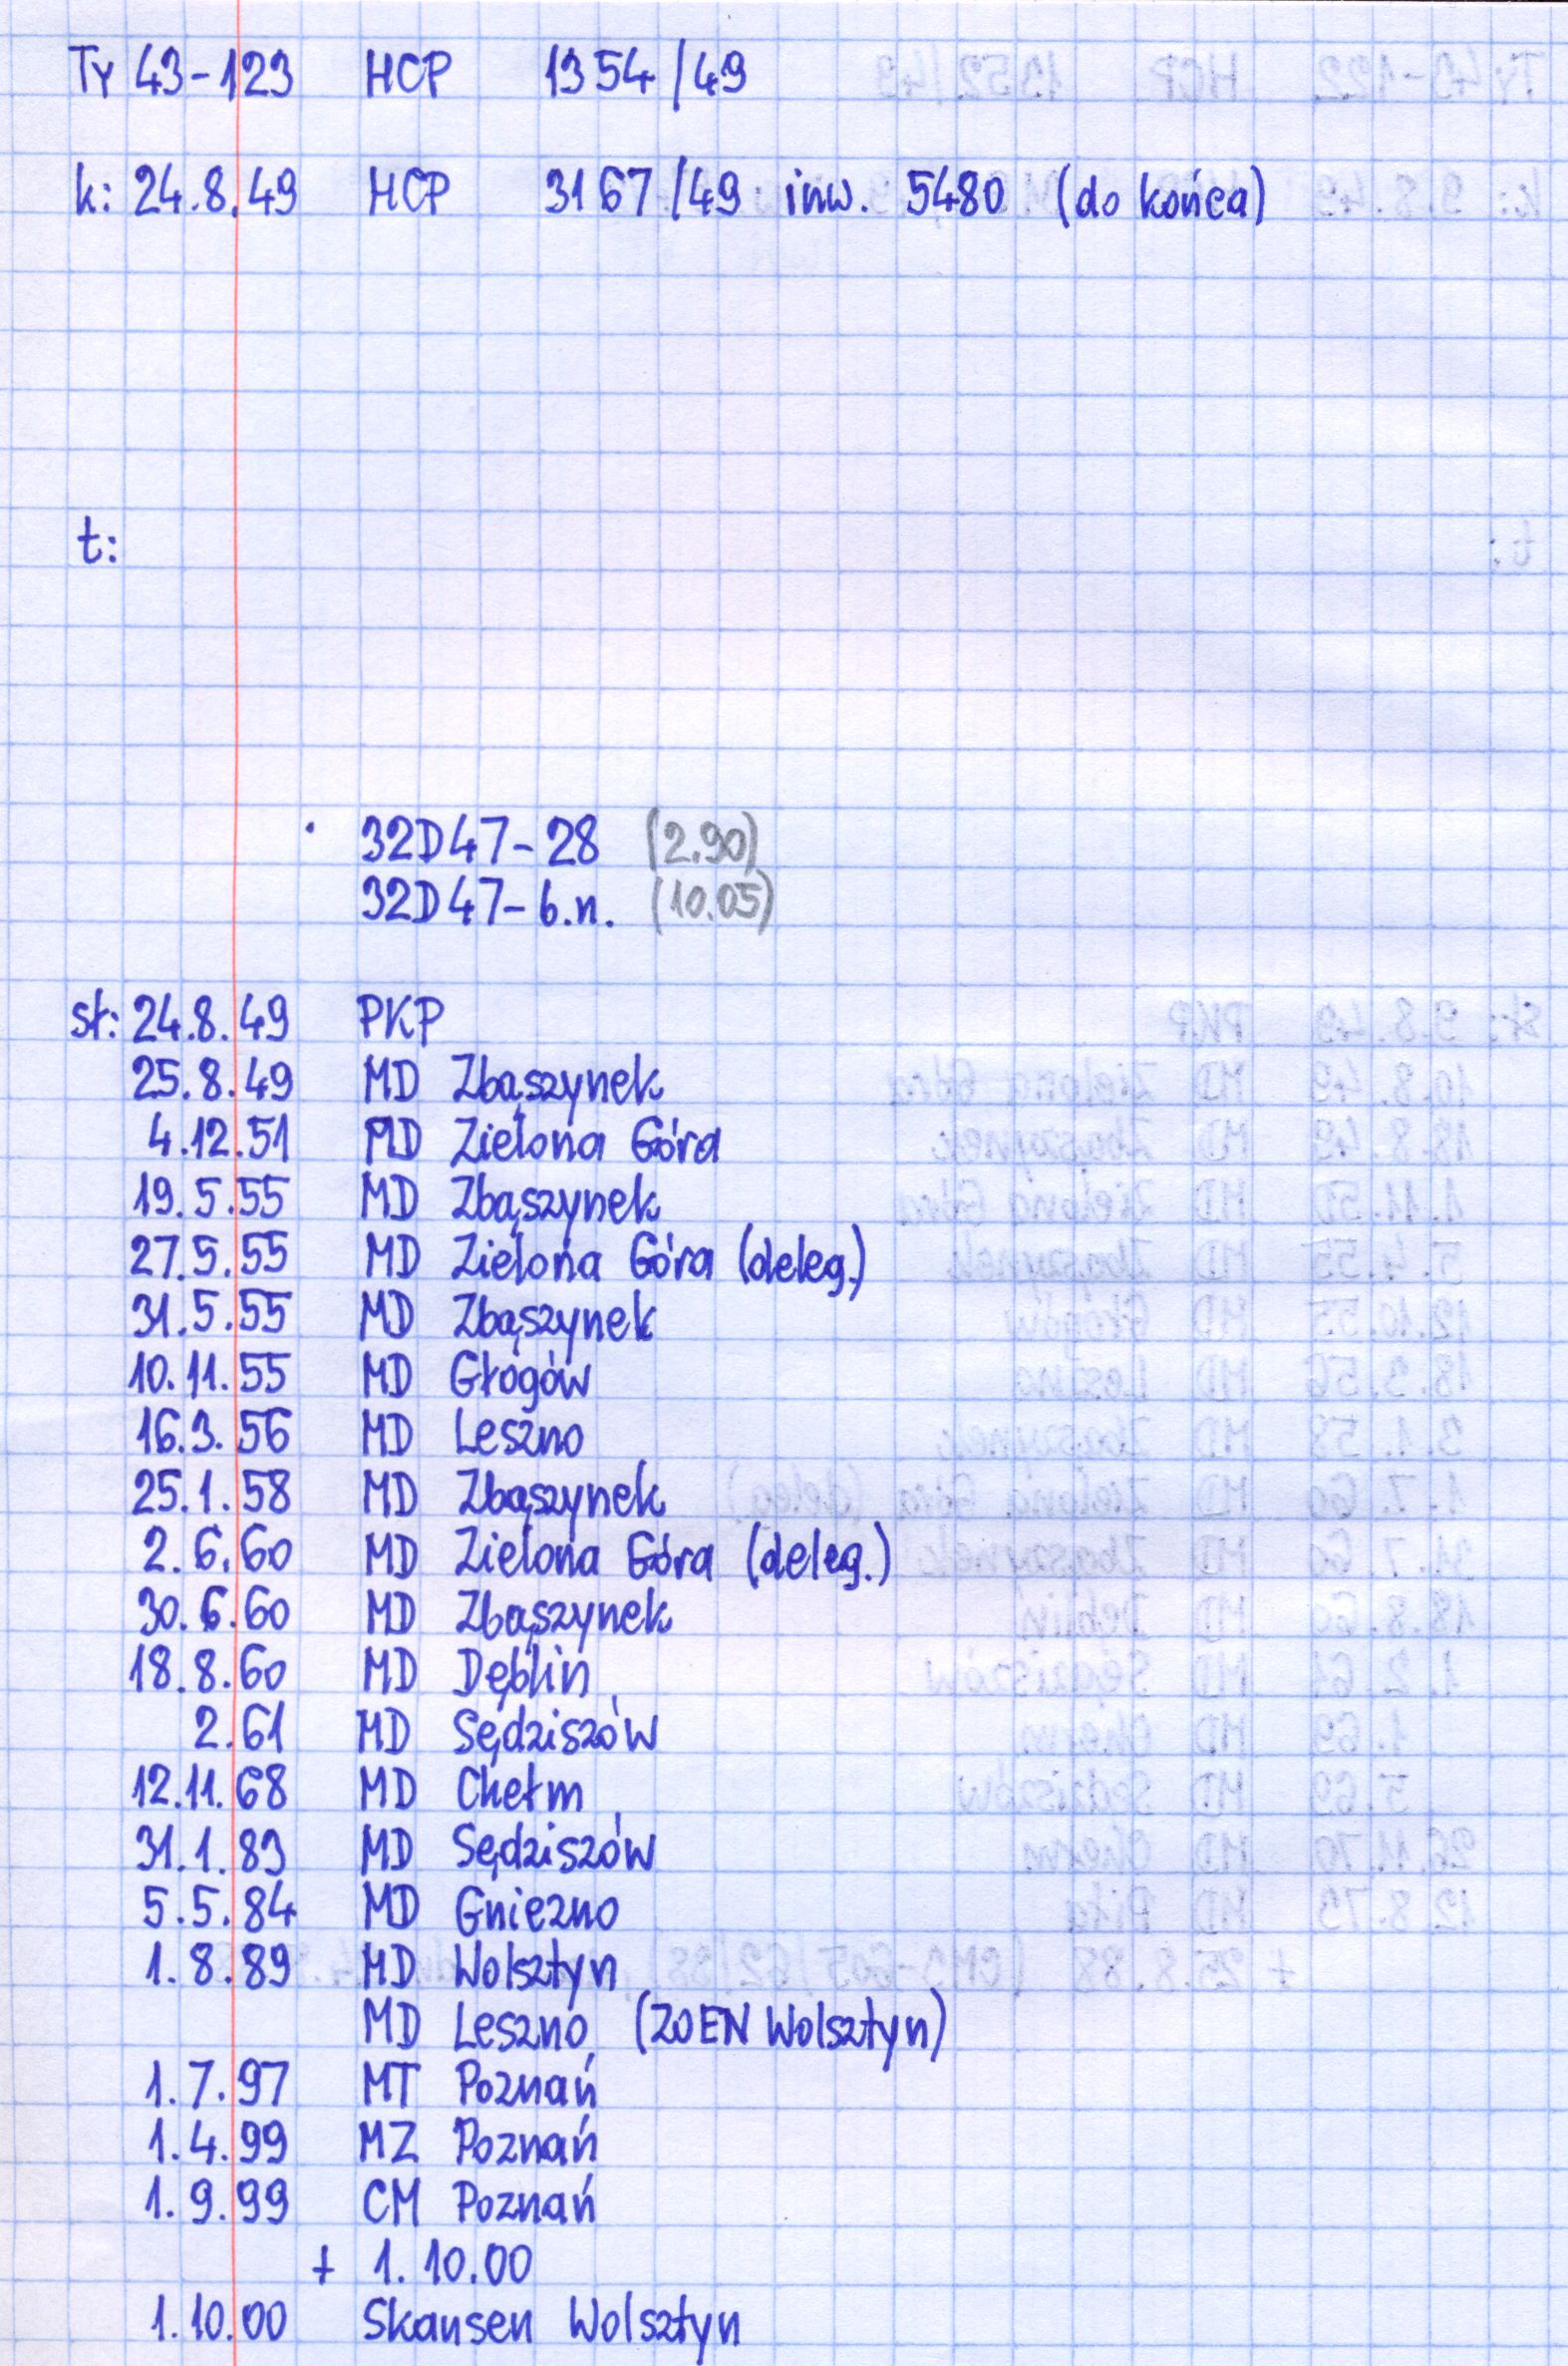 Ty 43-123 HCP 1354/49
k: 24.8.49 HCP 3167/49 inw. 5480 (do końca)
t:
32D47-28 (2.90)
32D47-b.n. (10.05)
st: 24.8.49 PKP
25.8.49 MD Zbąszynek
4.12.51 MD Zielona Góra
19.5.55 MD Zbąszynek
27.5.55 MD Zielona Góra (deleg.)
31.5.55 MD Zbąszynek
10.11.55 MD Głogów
16.3.56 MD Leszno
25.1.58 MD Zbąszynek
2.6.60 MD Zielona Góra (deleg.)
30.6.60 MD Zbąszynek
18.8.60 MD Dęblin
2.61 MD Sędziszów
12.11.68 MD Chełm
31.1.83 MD Sędziszów
5.5.84 MD Gniezno
1.8.89 MD Wolsztyn
MD Leszno (ZOEN Wolsztyn)
1.7.97 MT Poznań
1.4.99 MZ Poznań
1.9.99 CM Poznań
+ 1.10.00
1.10.00 Skansen Wolsztyn